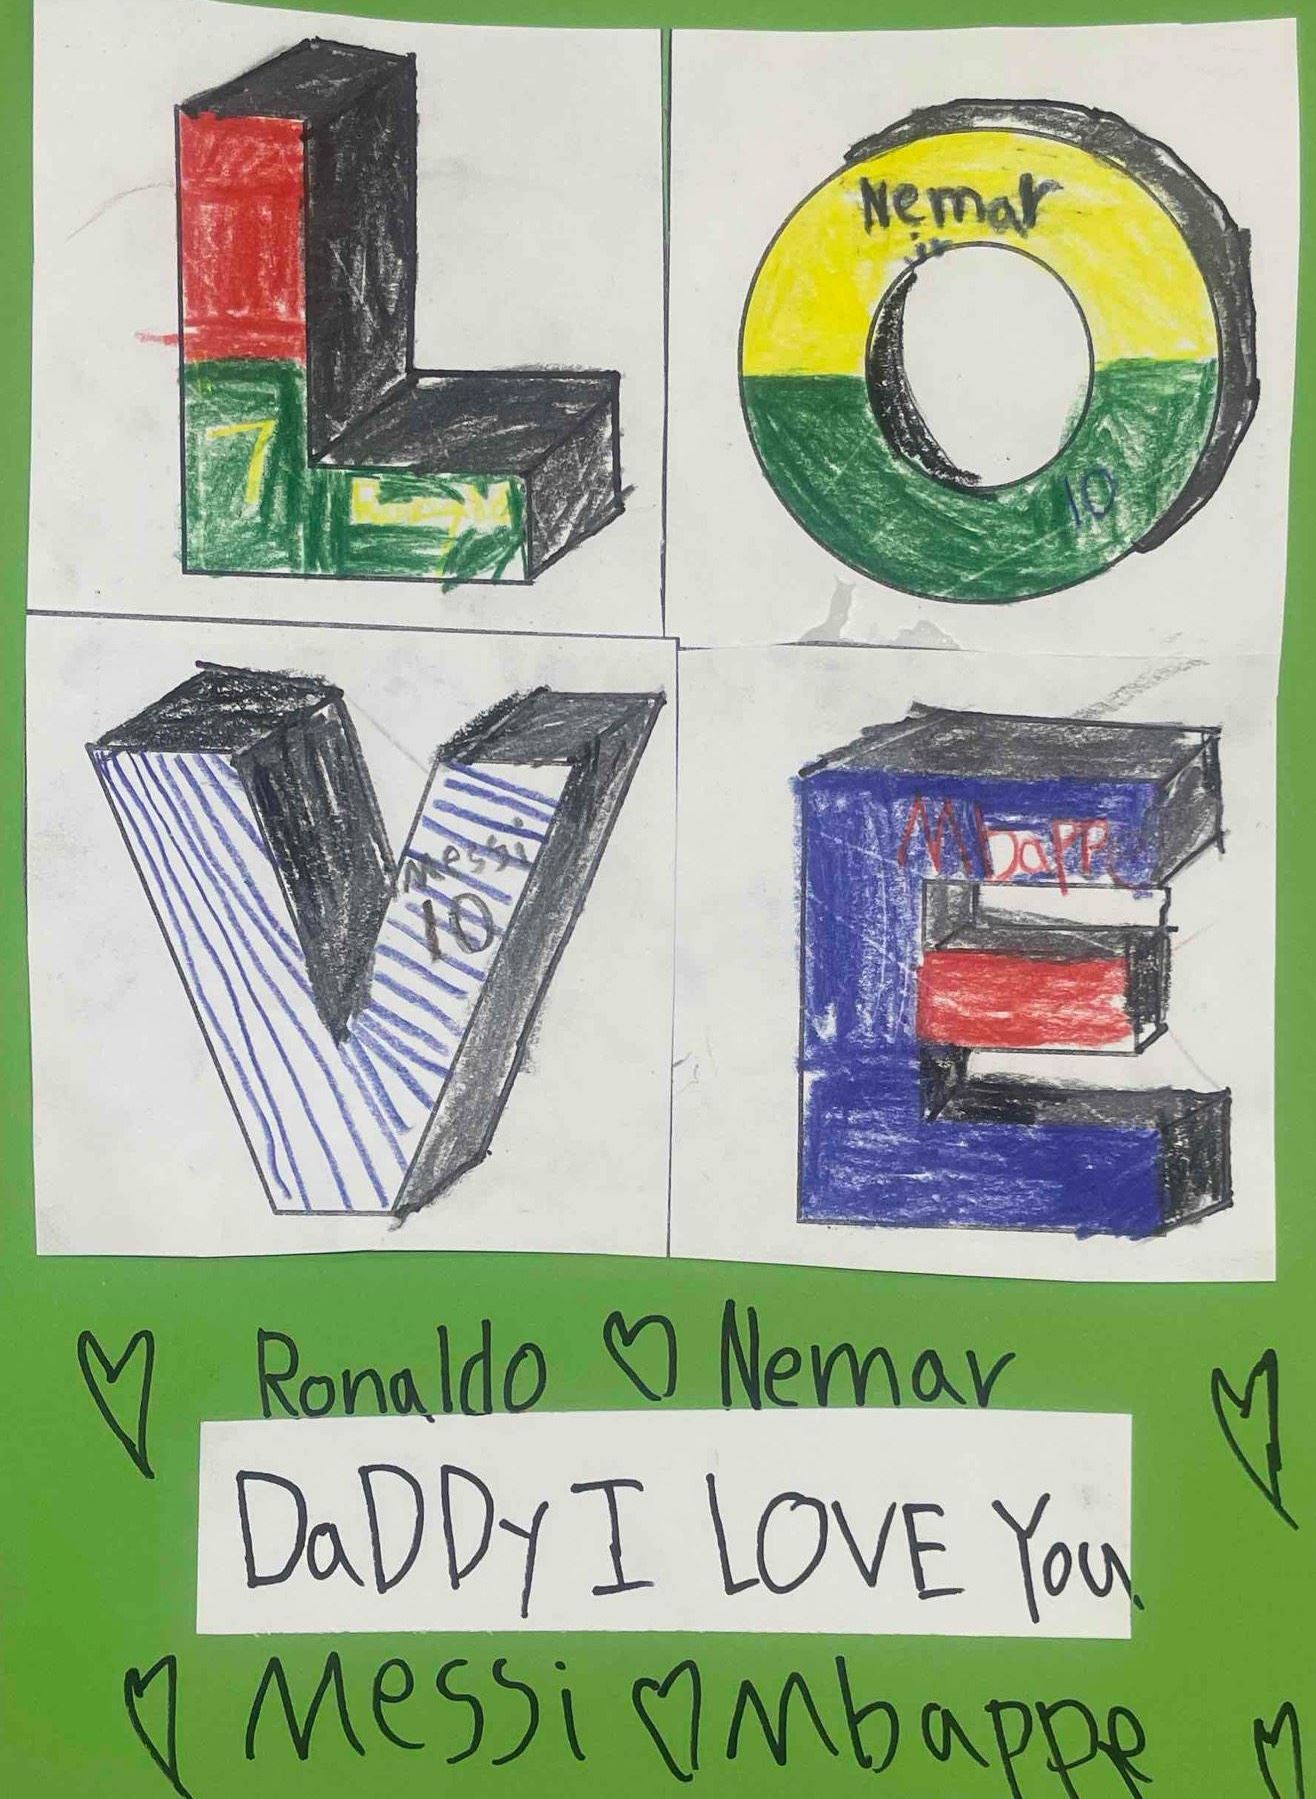 L O
Nemar
jr
7
10
V E
Mbappe
Messi
10
Ronaldo Nemar
DaDDy I LOVE You
Messi Mbappe